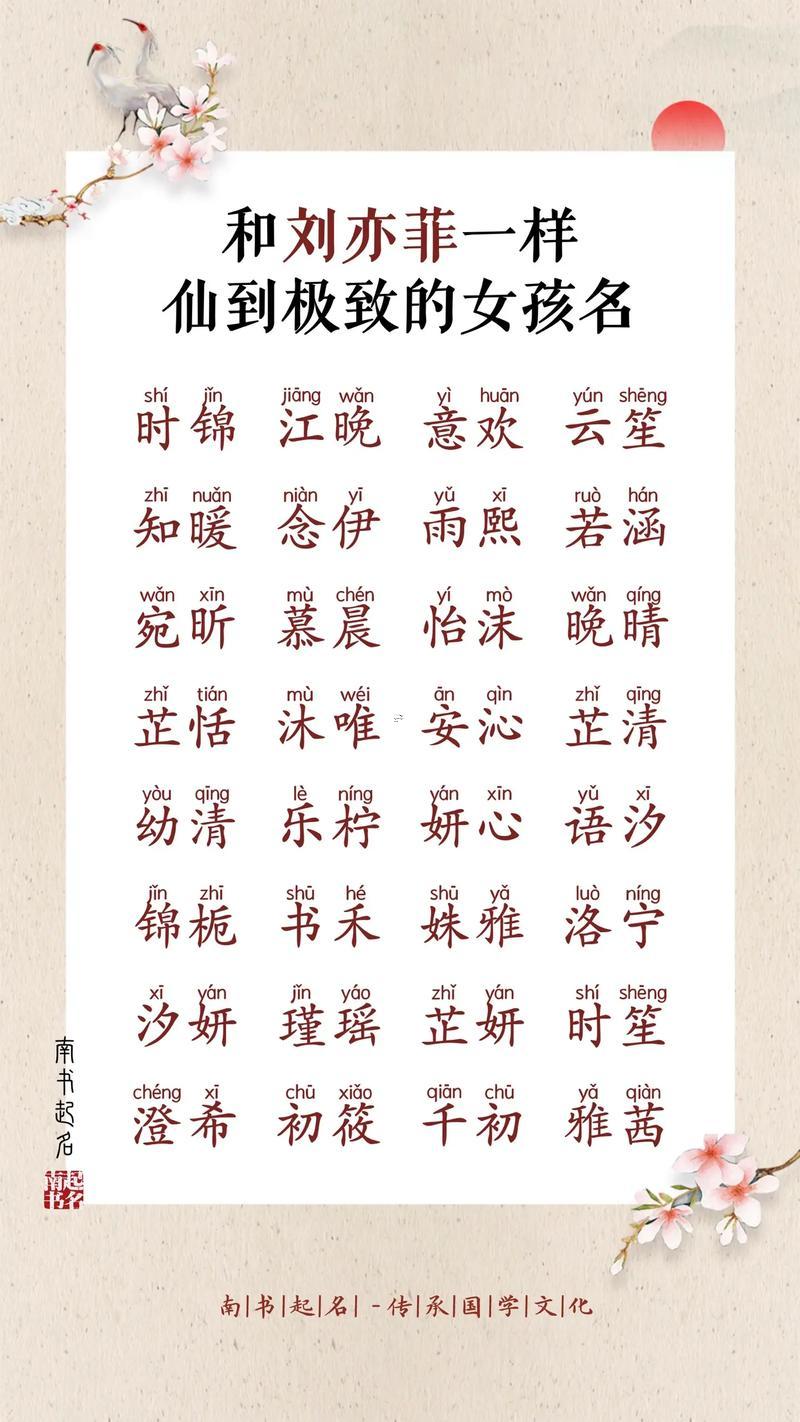 和刘亦菲一样
仙到极致的女孩名
shí jǐn jiāng wǎn yì huān yún shēng
时锦 江晚 意欢 云笙
zhī nuǎn niàn yī yǔ xī ruò hán
知暖 念伊 雨熙 若涵
wǎn xīn mù chén yí mò wǎn qíng
宛昕 慕晨 怡沫 晚晴
zhǐ tián mù wéi ān qìn zhǐ qīng
芷恬 沐唯 安沁 芷清
yòu qīng lè níng yán xīn yǔ xī
幼清 乐柠 妍心 语汐
jǐn zhī shū hé shū yǎ luò níng
锦栀 书禾 姝雅 洛宁
xī yán jǐn yáo zhǐ yán shí shēng
汐妍 瑾瑶 芷妍 时笙
chéng xī chū xiǎo qiān chū yǎ qiàn
澄希 初筱 千初 雅茜
南书起名
南书起名
南|书|起|名| - 传|承|国|学|文|化